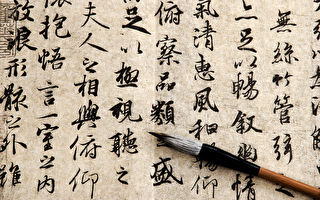 無絲竹管弦之
亦足以暢敘幽情
氣清惠風和暢仰
俯察品類之盛
足以極視聽之
夫人之相與俯仰
懷抱悟言一室之內
放浪形骸之外雖